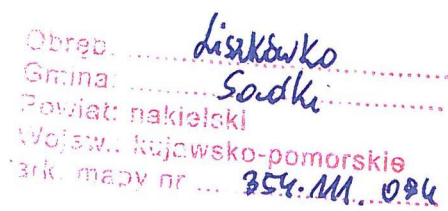 Obręb: Liszkówko
Gmina: Sadki
Powiat: nakielski
Wojew.: kujawsko-pomorskie
ark. mapy nr ... 354.111.084